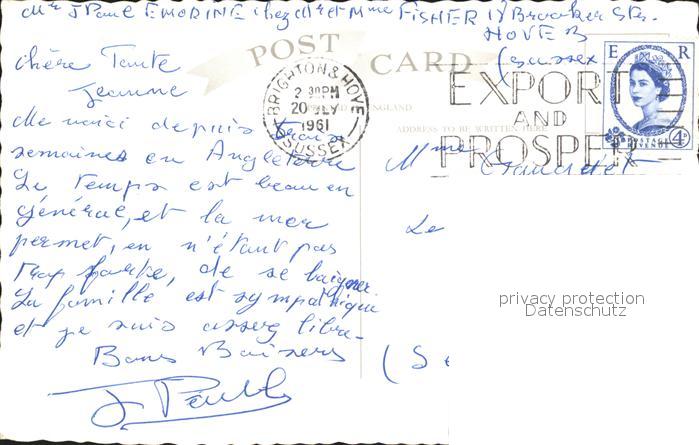 Mr J Paul EMORINE chez Mr et Mme FISHER 18 Brooker Str.
HOVE 3
(Sussex
POST CARD
chère Tante
Jeanne
Me voici depuis trois
semaines en Angleterre
Le temps est beau en
général, et la mer
permet, en n'étant pas
trop forte, de se baigner.
La famille est sympathique
et je suis assez libre.
Bons Baisers
J Paul
BRIGHTON & HOVE
2-30PM
20 JLY
1961
SUSSEX
ENGLAND
ADDRESS TO BE WRITTEN HERE
EXPORT
AND
PROSPER
E R
POSTAGE
REVENUE
4D
Mme
Le
(S
privacy protection
Datenschutz